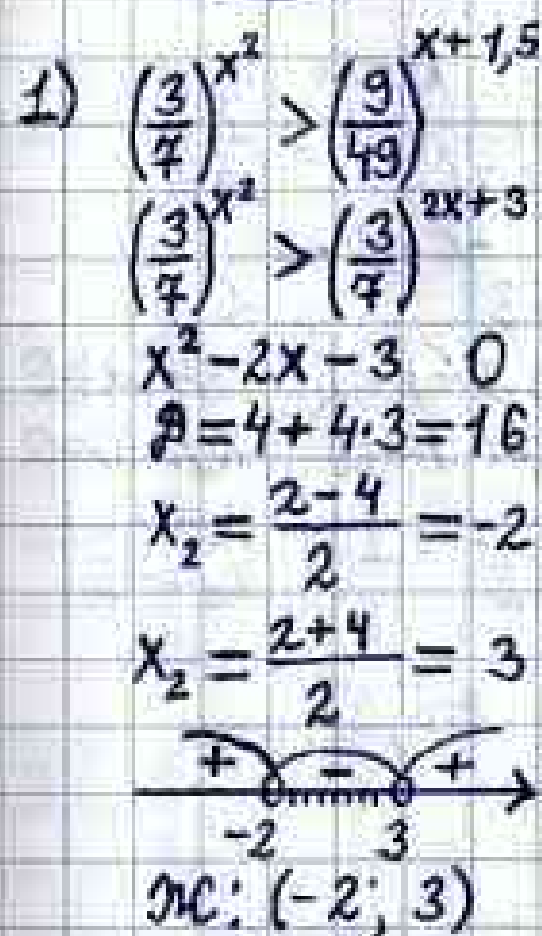 1) (3/7)^x² > (9/49)^x+1,5
(3/7)^x² > (3/7)^2x+3
x²-2x-3 0
D=4+4·3=16
x₂ = (2-4)/2 = -2
x₂ = (2+4)/2 = 3
+ - +
-2 3
Ж: (-2; 3)